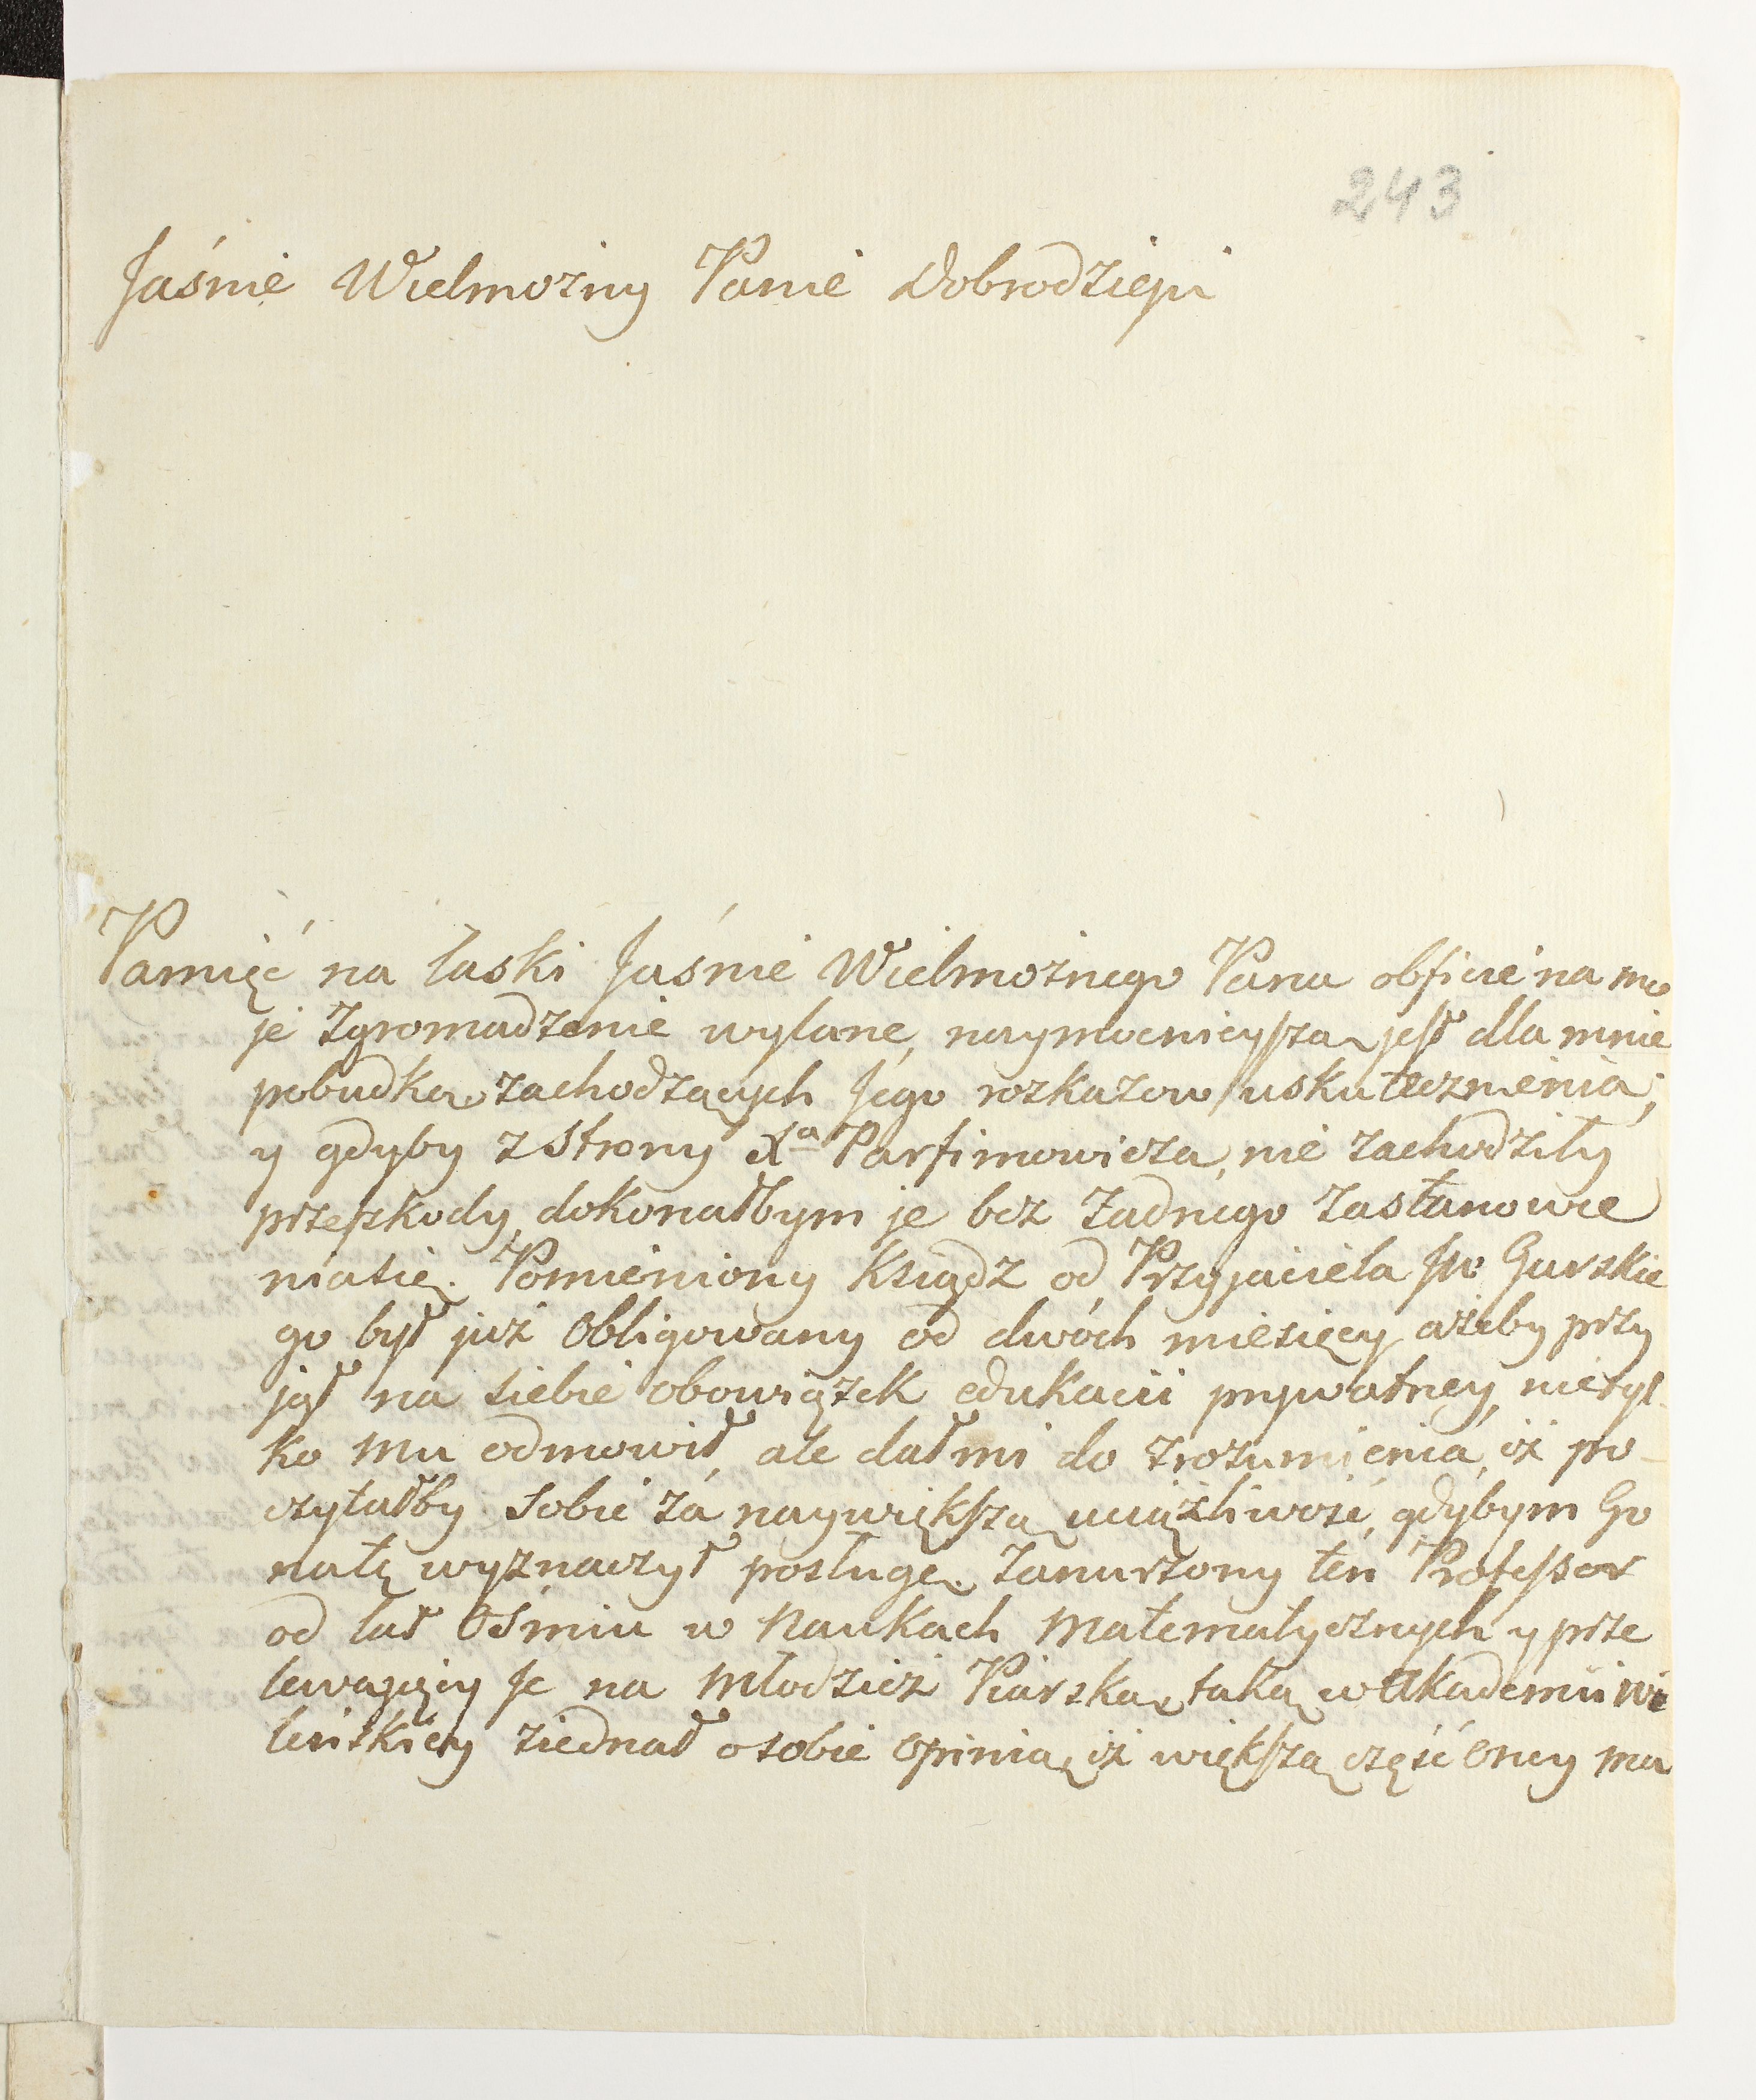 243
Jaśnie Wielmożny Panie Dobrodzieju
Pamięć na łaski Jaśnie Wielmożnego Pana obficie na mo
je Zgromadzenie wylane, naymocnieyszą jest dla mnie
pobudką zachodzących Jego rozkazow uskutecznienia;
y gdyby z strony Xa Parfimowicza, nie zachodziły
przeszkody, dokonałbym je bez żadnego zastanowie
niasię. Pomieniony Ksiądz od Przyjaciela JW Gurskie
go był już obligowany od dwóch miesięcy, ażeby przy
jął na siebie obowiązek edukacii prywatney, nietyl-
ko mu odmowił, ale dał mi do zrozumienia, iż po-
czytałby sobie za naywiększą uciążliwość, gdybym Go
natę wyznaczył posługę. Zanurzony ten Professor
od lat Ośmiu w Naukach Matematycznych y prze
lewający Je na Młodzież Piarską, taką w Akademii Wi
leńskiey ziednał o sobie opinią, iż większą część oney ma